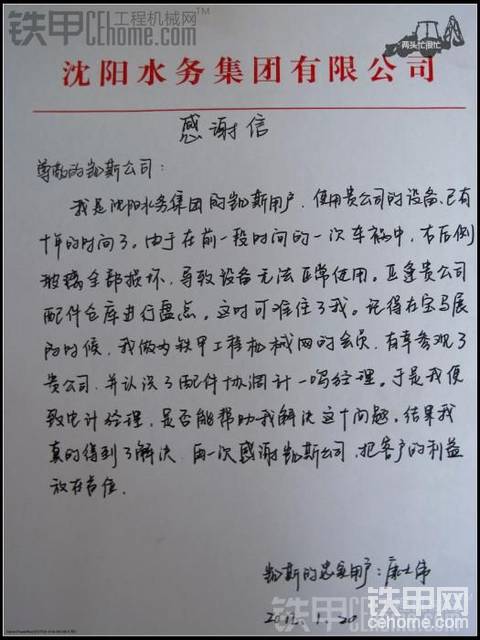 铁甲工程机械网
CEhome.com
两头忙很忙
沈阳水务集团有限公司
感谢信
尊敬的凯斯公司：
我是沈阳水务集团的凯斯用户，使用贵公司的设备已有
十年的时间了。由于在前一段时间的一次车祸中，右后侧
玻璃全部损坏，导致设备无法正常使用。正逢贵公司
配件仓库进行盘点，这时可难住了我。记得在宝马展
的时候，我做为铁甲工程机械网的会员，有幸参观了
贵公司，并认识了配件协调计一鸣经理。于是我便
致电计经理，是否能帮助我解决这个问题。结果我
真的得到了解决。再一次感谢凯斯公司，把客户的利益
放在首位。
凯斯的忠实用户：康士伟
2012.1.20
铁甲网
cehome.com